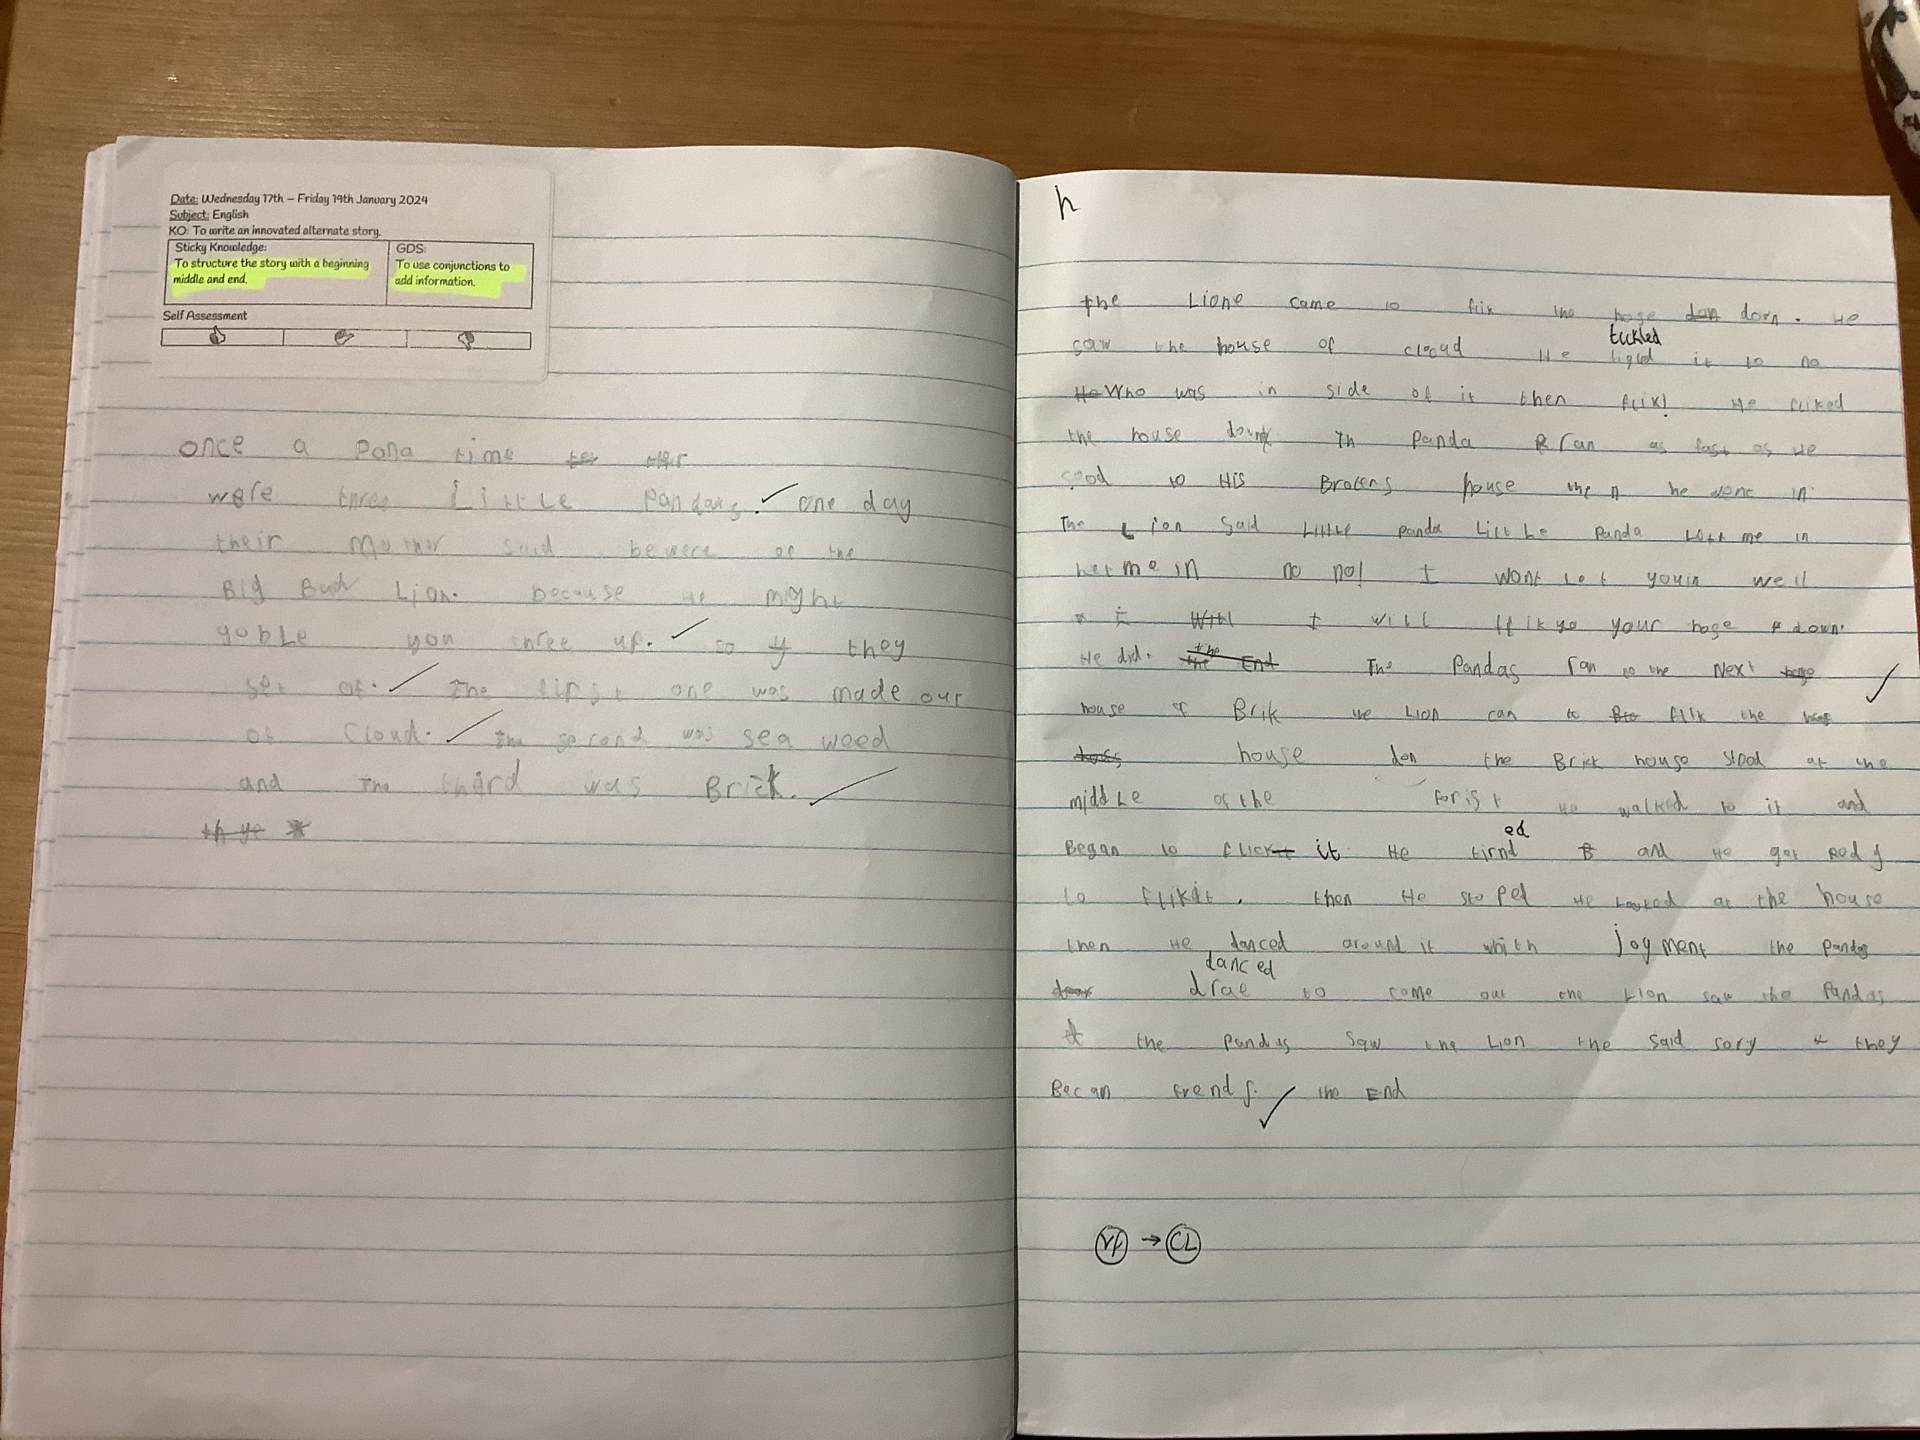 Date: Wednesday 17th – Friday 19th January 2024
Subject: English
KO: To write an innovated alternate story.
Sticky Knowledge:
To structure the story with a beginning
middle and end.
GDS:
To use conjunctions to
add information.
Self Assessment
once a pona time
were three Little Pandars. one day
their Mother said bewere of the
Big Bad Lion. because he might
goble you three up. so they
set of. The first one was made our
of Cloud. The second was sea weed
and The third was Brick.
h
the Lione came to flik the hoge dorn. He
saw the house of cloud He tickled it to no
Who was in side of it then flik! He fliked
the house down Th Panda Ran as fast as He
cood to His Broters house then he wont in
The Lion Said Little panda Little Panda Let me in
Let me in no no! I wont Let you in well
I will flik yo your hoge down.
He did. The Pandas ran to the Next
house of Brik he Lion can to flik the
house don the Brick house stood at the
middLe of the forist He walked to it and
Began to flick it He tirnd ed and He got redy
to flik it. then He stoped He Looked at the house
then He danced around it whith joyment the Pandas
danced
drae to come out the Lion saw the Pandas
the Pandas saw the Lion the said sory they
Becan frends. the End
VF → CL